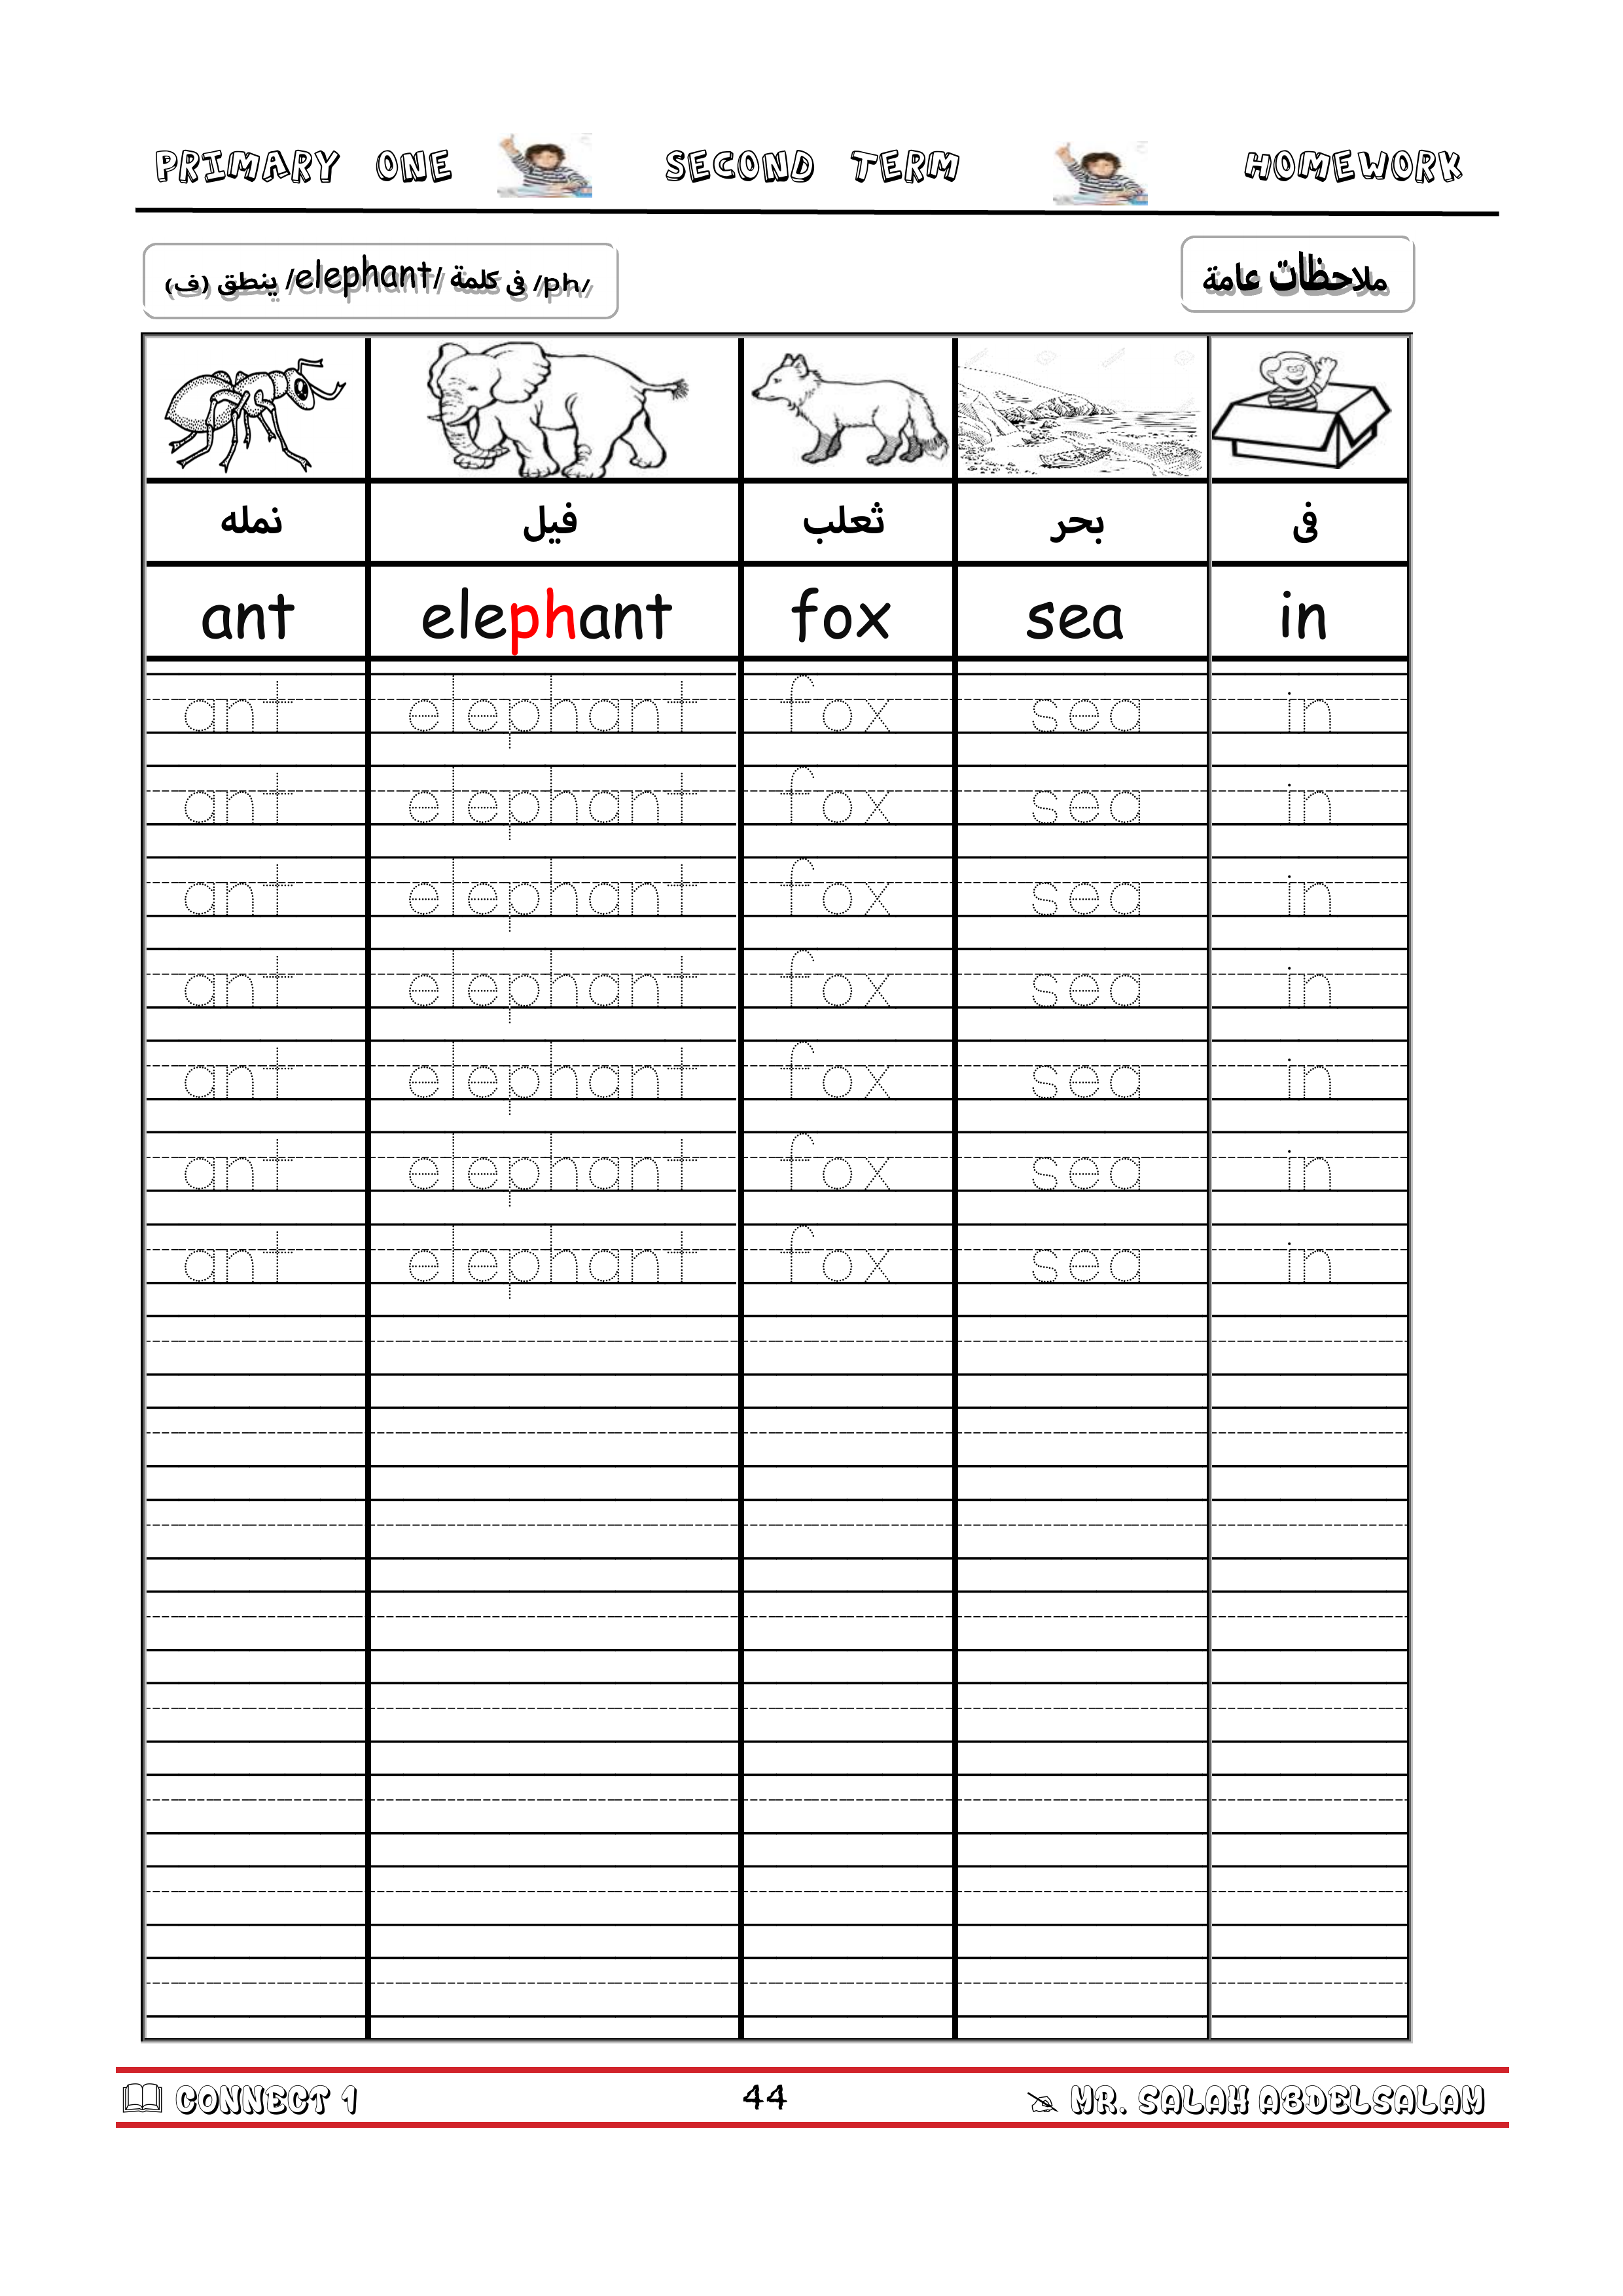 PRIMARY ONE SECOND TERM HOMEWORK
ملاحظات عامة
/ph/ فى كلمة /elephant/ ينطق (ف)
نمله فيل ثعلب بحر فى
ant elephant fox sea in
ant elephant fox sea in
ant elephant fox sea in
ant elephant fox sea in
ant elephant fox sea in
ant elephant fox sea in
ant elephant fox sea in
ant elephant fox sea in
CONNECT 1 44 MR. SALAH ABDELSALAM